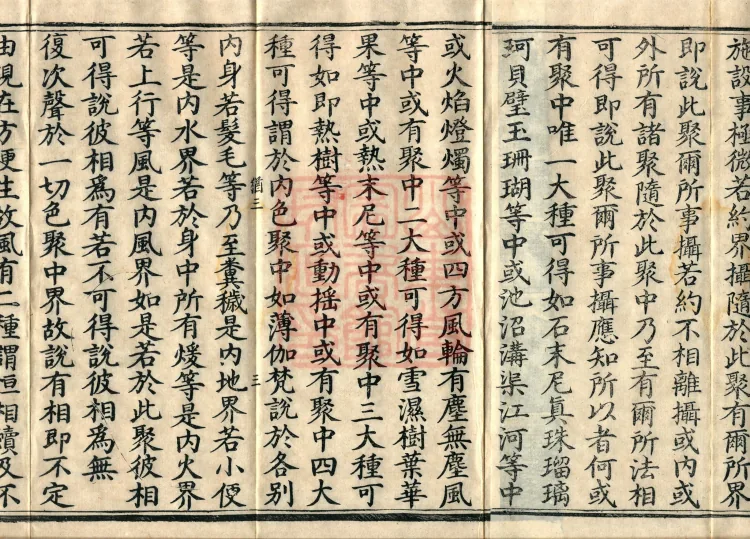 施設事極微若約界攝隨於此聚有爾所界
即說此聚爾所事攝若約不相離攝或內或
外所有諸聚隨於此聚中乃至有爾所法相
可得即說此聚爾所事攝應知所以者何或
有聚中唯一大種可得如石末尼眞珠瑠璃
珂貝璧玉珊瑚等中或池沼溝渠江河等中
或火焰燈燭等中或四方風輪有塵無塵風
等中或有聚中二大種可得如雪濕樹葉華
果等中或熱末尼等中或有聚中三大種可
得如即熱樹等中或動搖中或有聚中四大
種可得謂於內色聚中如薄伽梵說於各別
猶三 三
內身若髮毛等乃至糞穢是內地界若小便
等是內水界若於身中所有煖等是內火界
若上行等風是內風界如是若於此聚彼相
可得說彼相爲有若不可得說彼相爲無
復次聲於一切色聚中界故說有相即不定
由現在方便生故風有二種謂恒相續及不